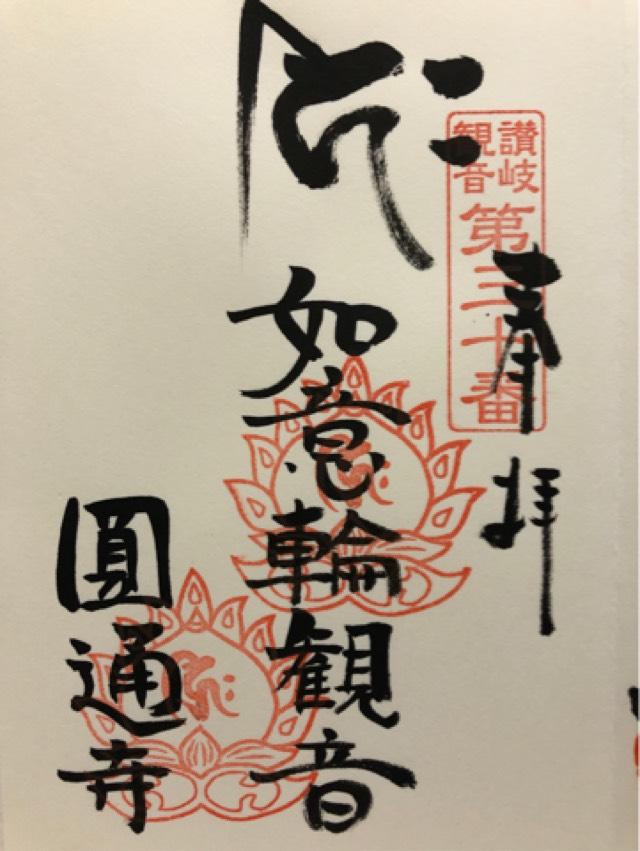 讃岐
観音
第三十番
奉拝
如意輪観音
圓通寺